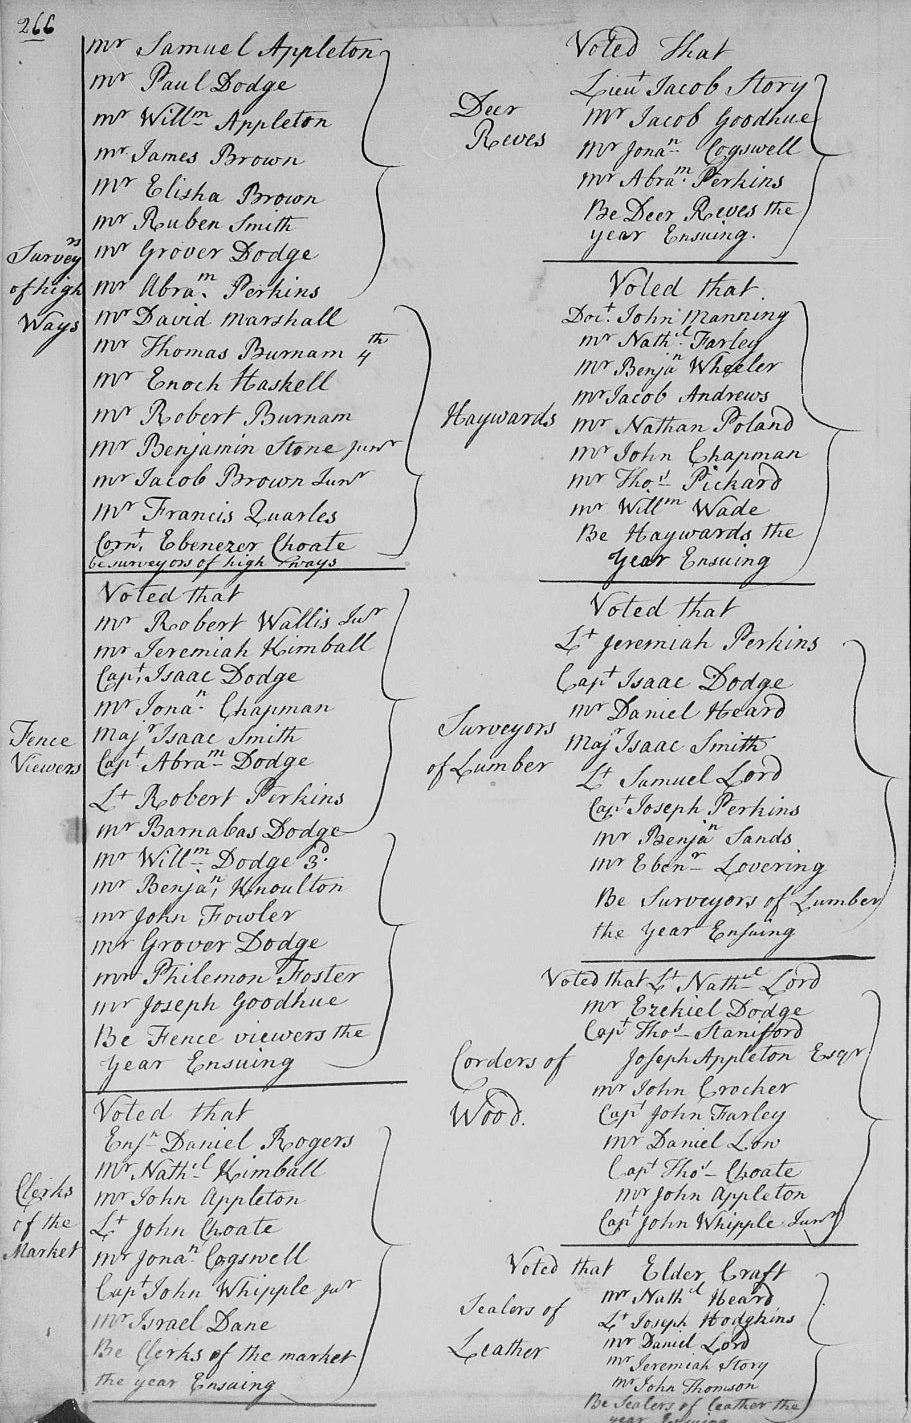 266
mr Samuel Appleton
mr Paul Dodge
mr Willm Appleton
mr James Brown
mr Elisha Brown
mr Ruben Smith
mr Grover Dodge
mr Abram. Perkins
Surveyrs
of high
Ways
mr David Marshall
mr Thomas Burnam 4th
mr Enoch Haskell
mr Robert Burnam
mr Benjamin Stone junr
mr Jacob Brown Junr
mr Francis Quarles
Cornt. Ebenezer Choate
be surveyors of high ways
Voted that
mr Robert Wallis Junr
mr Jeremiah Kimball
Capt. Isaac Dodge
mr Jonan. Chapman
Majr Isaac Smith
Fence
Viewers
Capt Abram Dodge
Lt Robert Perkins
mr Barnabas Dodge
mr Willm Dodge 3d.
mr Benjan. Knoulton
mr John Fowler
mr Grover Dodge
mr Philemon Foster
mr Joseph Goodhue
Be Fence viewers the
year Ensuing
Voted that
Ensn Daniel Rogers
mr Nathel Kimball
Clerks
of the
Market
mr John Appleton
Lt John Choate
mr Jonan. Cogswell
Capt John Whipple jur
mr Israel Dane
Be Clerks of the market
the year Ensuing
Voted that
Deer
Reves
Lieut Jacob Story
mr Jacob Goodhue
mr Jonan. Cogswell
mr Abram. Perkins
Be Deer Reves the
year Ensuing.
Voted that
Doct. John Manning
mr Nathel. Farley
mr Benjan Wheeler
mr Jacob Andrews
Haywards
mr Nathan Poland
mr John Chapman
mr Thos Pickard
mr Willm Wade
Be Haywards the
Year Ensuing
Voted that
Lt Jeremiah Perkins
Capt Isaac Dodge
Surveyors
of Lumber
mr Daniel Heard
Majr Isaac Smith
Lt Samuel Lord
Capt Joseph Perkins
mr Benjan Sands
mr Ebenr Lovering
Be Surveyors of Lumber
the year Ensuing
Voted that Lt Nathel Lord
mr Ezekiel Dodge
Capt Thos Staniford
Corders of
Wood.
Joseph Appleton Esqr
mr John Crocker
Capt John Farley
mr Daniel Low
Capt Thos Choate
mr John Appleton
Capt John Whipple Junr
Voted that Elder Craft
Sealers of
Leather
mr Nathel Heard
Lt Joseph Hodgkins
mr Daniel Lord
mr Jeremiah Story
mr John Thomson
Be Sealers of leather the
year Ensuing